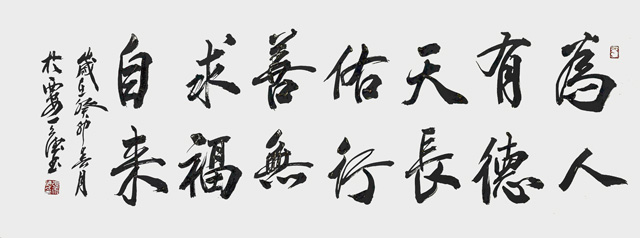 為人
有德
天長
佑行
善無
求福
自来
歲在癸卯月
於